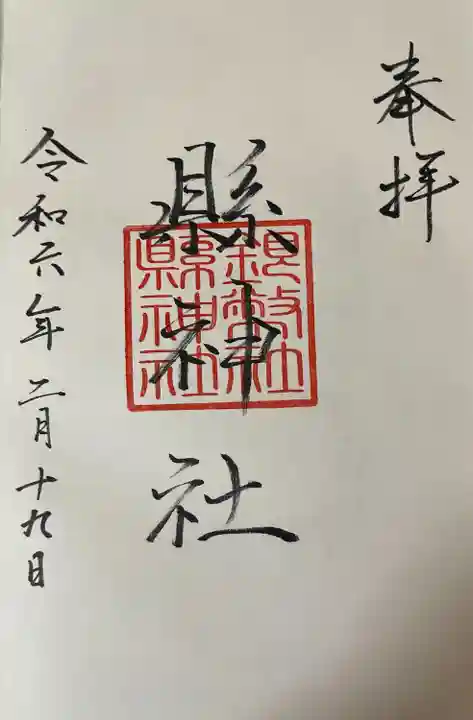 奉拝
縣神社
縣神社
令和六年二月十九日